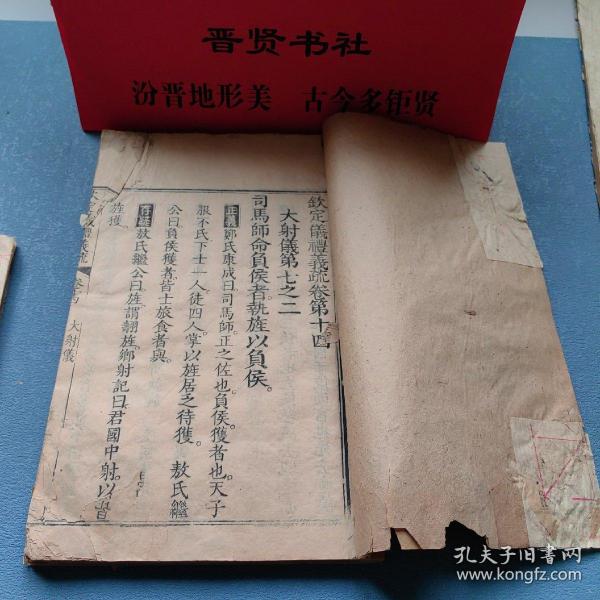 晋贤书社
汾晋地形美 古今多钜贤
欽定儀禮義疏卷第十四
大射儀第七之二
司馬師命負侯者執旌以負侯。
正義 鄭氏康成曰司馬師。正之佐也。負侯。獲者也。天子
服不氏下士一人。徒四人。掌以旌居乏待獲。 敖氏繼
公曰。負侯獲者。皆士旅食者與。
存疑 敖氏繼公曰。旌。謂翿旌。鄉射記曰。君國中射。以翿
旌獲
大射儀
孔夫子旧书网
www.kongfz.com